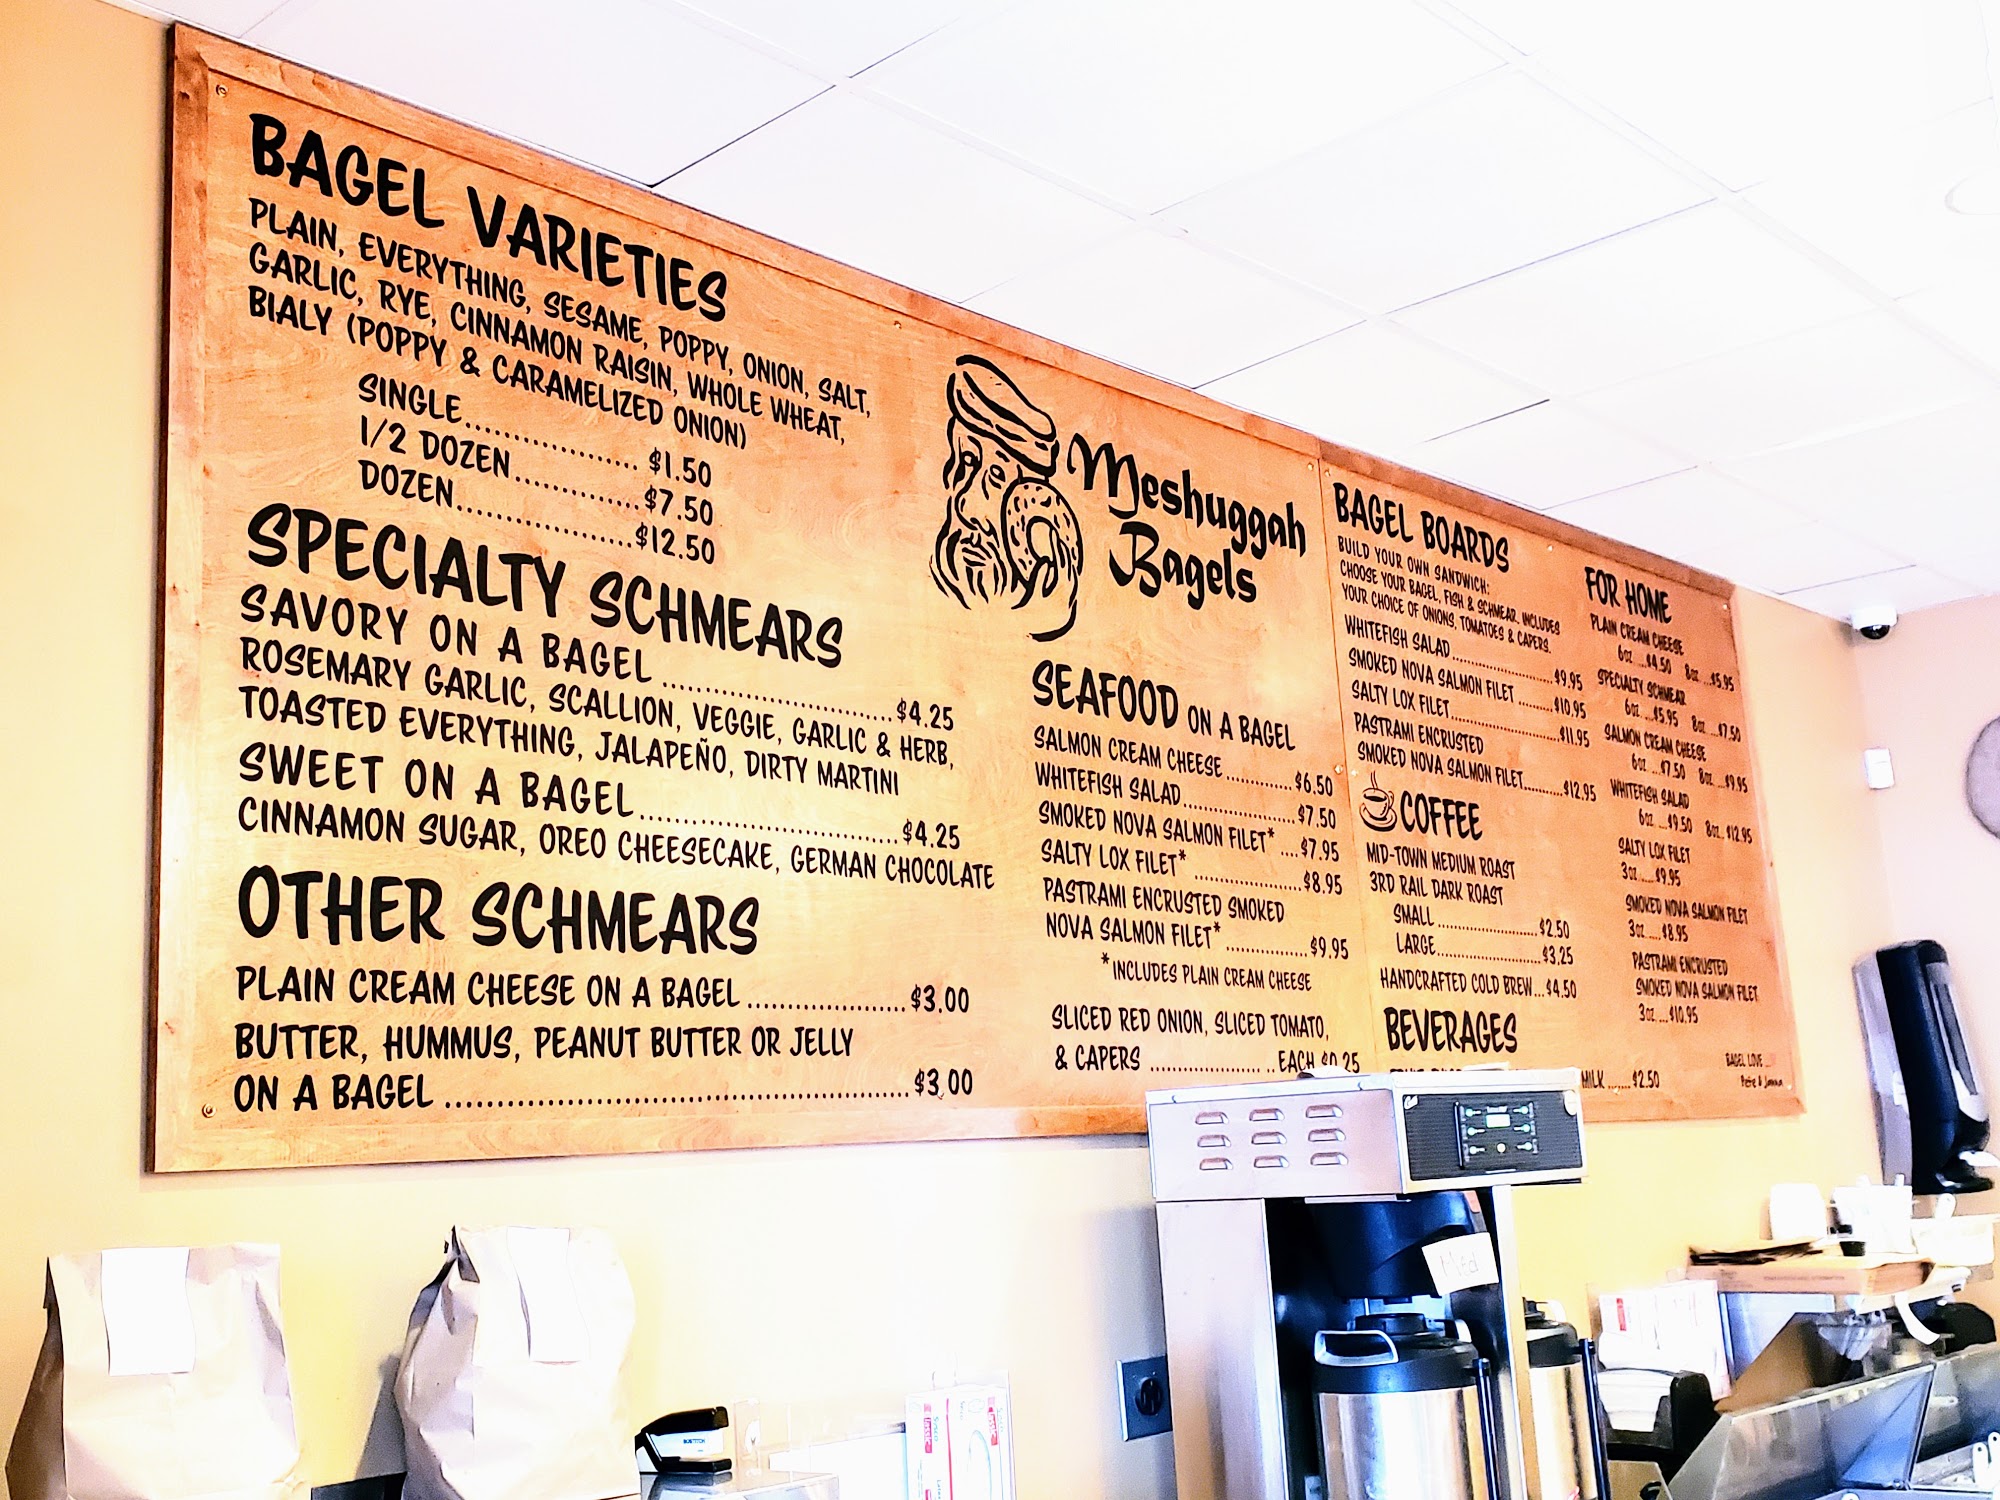 BAGEL VARIETIES
PLAIN, EVERYTHING, SESAME, POPPY, ONION, SALT,
GARLIC, RYE, CINNAMON RAISIN, WHOLE WHEAT,
BIALY (POPPY & CARAMELIZED ONION)
SINGLE.................... $1.50
1/2 DOZEN...............$7.50
DOZEN.....................$12.50
SPECIALTY SCHMEARS
SAVORY ON A BAGEL ...........................$4.25
ROSEMARY GARLIC, SCALLION, VEGGIE, GARLIC & HERB,
TOASTED EVERYTHING, JALAPEÑO, DIRTY MARTINI
SWEET ON A BAGEL...............................$4.25
CINNAMON SUGAR, OREO CHEESECAKE, GERMAN CHOCOLATE
OTHER SCHMEARS
PLAIN CREAM CHEESE ON A BAGEL ...................$3.00
BUTTER, HUMMUS, PEANUT BUTTER OR JELLY
ON A BAGEL ......................................................$3.00
Meshuggah
Bagels
SEAFOOD ON A BAGEL
SALMON CREAM CHEESE.............$6.50
WHITEFISH SALAD......................$7.50
SMOKED NOVA SALMON FILET* ....$7.95
SALTY LOX FILET* ......................$8.95
PASTRAMI ENCRUSTED SMOKED
NOVA SALMON FILET* ................$9.95
*INCLUDES PLAIN CREAM CHEESE
SLICED RED ONION, SLICED TOMATO,
& CAPERS ...................... EACH $0.25
BAGEL BOARDS
BUILD YOUR OWN SANDWICH:
CHOOSE YOUR BAGEL, FISH & SCHMEAR. INCLUDES
YOUR CHOICE OF ONIONS, TOMATOES & CAPERS.
WHITEFISH SALAD....................$9.95
SMOKED NOVA SALMON FILET .........$10.95
SALTY LOX FILET......................$11.95
PASTRAMI ENCRUSTED
SMOKED NOVA SALMON FILET..........$12.95
COFFEE
MID-TOWN MEDIUM ROAST
3RD RAIL DARK ROAST
SMALL......................$2.50
LARGE.......................$3.25
HANDCRAFTED COLD BREW...$4.50
BEVERAGES
MILK ......$2.50
FOR HOME
PLAIN CREAM CHEESE
6oz ...$4.50 8oz ...$5.95
SPECIALTY SCHMEAR
6oz ...$5.95 8oz ...$7.50
SALMON CREAM CHEESE
6oz ...$7.50 8oz ...$9.95
WHITEFISH SALAD
6oz ...$9.50 8oz ...$12.95
SALTY LOX FILET
3oz ....$9.95
SMOKED NOVA SALMON FILET
3oz ....$8.95
PASTRAMI ENCRUSTED
SMOKED NOVA SALMON FILET
3oz ....$10.95
BAGEL LOVE ...
Pete & Janna
Med